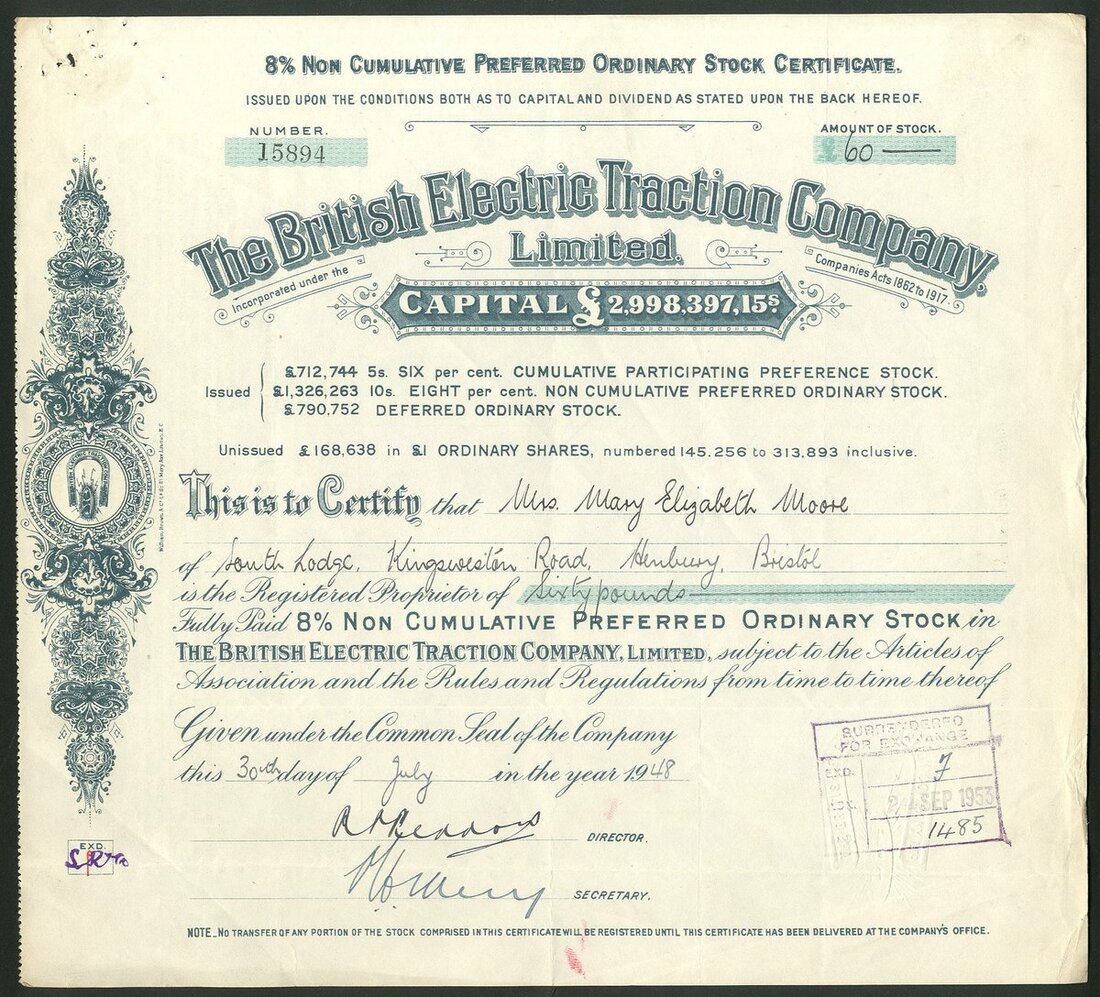 8% NON CUMULATIVE PREFERRED ORDINARY STOCK CERTIFICATE.
ISSUED UPON THE CONDITIONS BOTH AS TO CAPITAL AND DIVIDEND AS STATED UPON THE BACK HEREOF.
NUMBER.
15894
AMOUNT OF STOCK.
£ 60
The British Electric Traction Company,
Limited.
Incorporated under the
Companies Acts 1862 to 1917.
CAPITAL £2,998,397,15s.
Issued
£712,744 5s. SIX per cent. CUMULATIVE PARTICIPATING PREFERENCE STOCK.
£1,326,263 10s. EIGHT per cent. NON CUMULATIVE PREFERRED ORDINARY STOCK.
£790,752 DEFERRED ORDINARY STOCK.
Unissued £168,638 in £1 ORDINARY SHARES, numbered 145.256 to 313,893 inclusive.
This is to Certify that Mrs. Mary Elizabeth Moore
of South Lodge, Kingsweston Road, Henbury, Bristol
is the Registered Proprietor of Sixty pounds
Fully Paid 8% NON CUMULATIVE PREFERRED ORDINARY STOCK in
THE BRITISH ELECTRIC TRACTION COMPANY, LIMITED, subject to the Articles of
Association and the Rules and Regulations from time to time thereof
Given under the Common Seal of the Company
this 30th day of July in the year 1948
DIRECTOR.
SECRETARY.
SURRENDERED
FOR EXCHANGE
EXD.
7
SEP 1953
1485
EXD.
NOTE_NO TRANSFER OF ANY PORTION OF THE STOCK COMPRISED IN THIS CERTIFICATE WILL BE REGISTERED UNTIL THIS CERTIFICATE HAS BEEN DELIVERED AT THE COMPANY'S OFFICE.